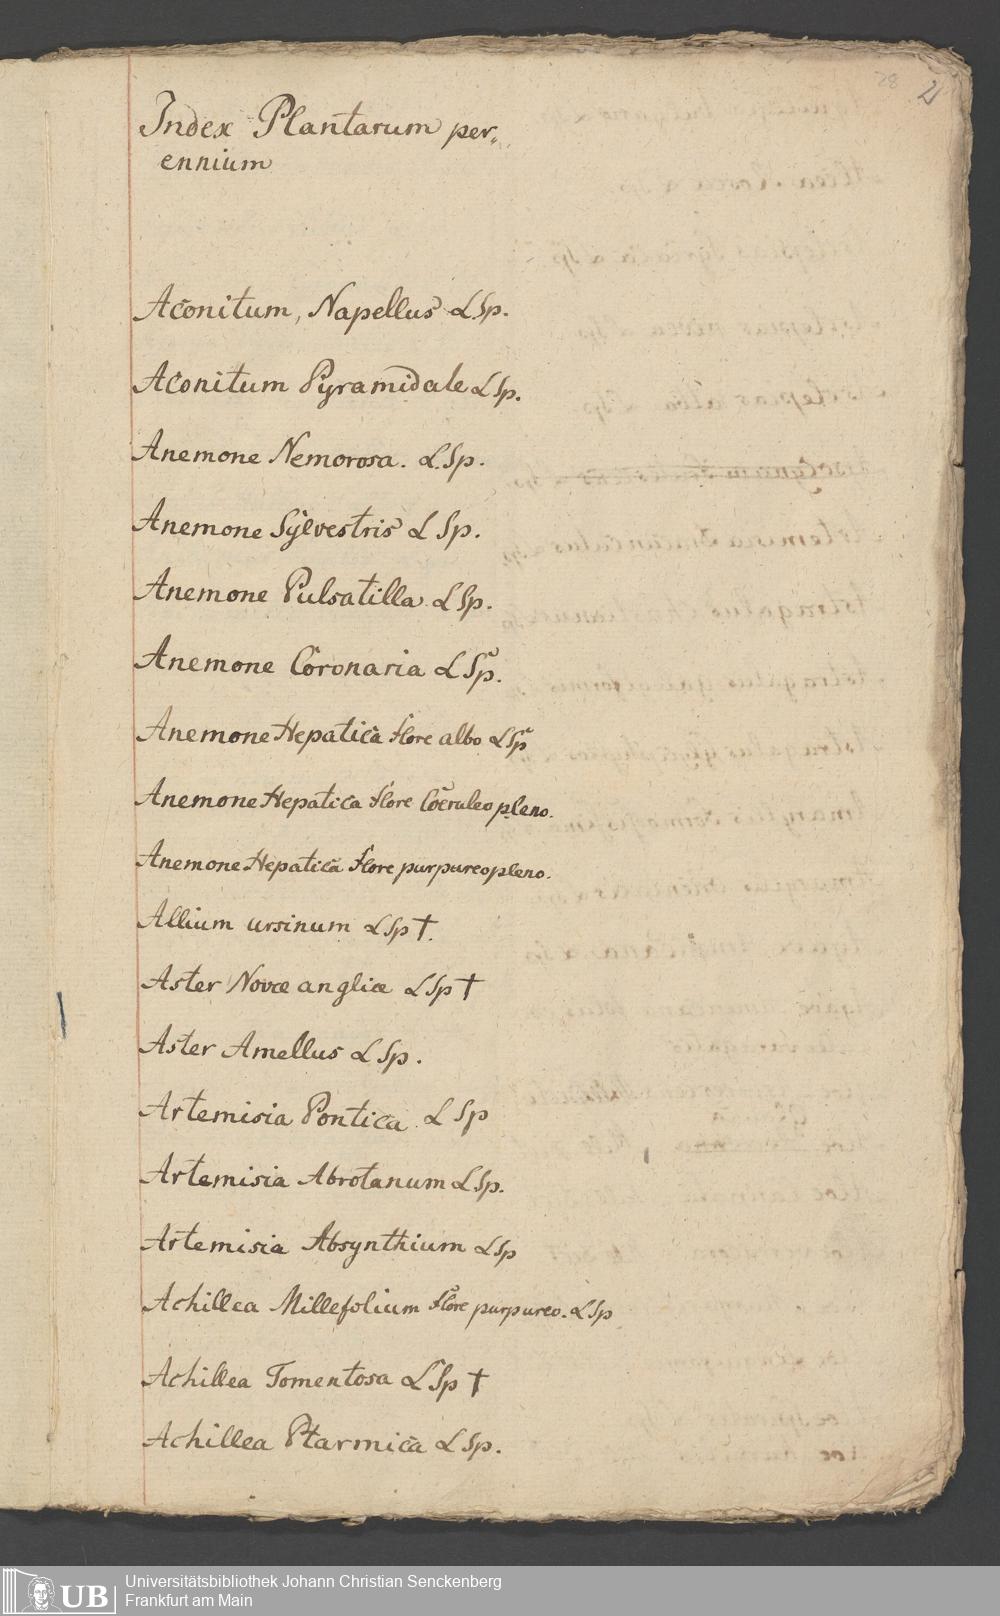 28 2
Index Plantarum per„
ennium
Aconitum, Napellus L Sp.
Aconitum Pyramidale L Sp.
Anemone Nemorosa. L. Sp.
Anemone Sylvestris L Sp.
Anemone Pulsatilla L Sp.
Anemone Coronaria L Sp.
Anemone Hepatica Flore albo L Sp
Anemone Hepatica Flore Coeruleo pleno.
Anemone Hepatica Flore purpureo pleno.
Allium ursinum L Sp †.
Aster Novæ angliæ L Sp †
Aster Amellus L Sp.
Artemisia Pontica L Sp
Artemisia Abrotanum L Sp.
Artemisia Absynthium L Sp
Achillea Millefolium Flore purpureo. L Sp
Achillea Tomentosa L Sp †
Achillea Ptarmica L Sp.
UB Universitätsbibliothek Johann Christian Senckenberg
Frankfurt am Main